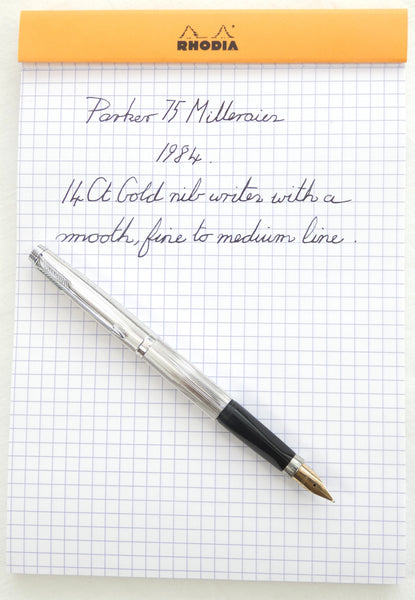 RHODIA
Parker 75 Milleraies
1984.
14 Ct Gold nib writes with a
smooth, fine to medium line.